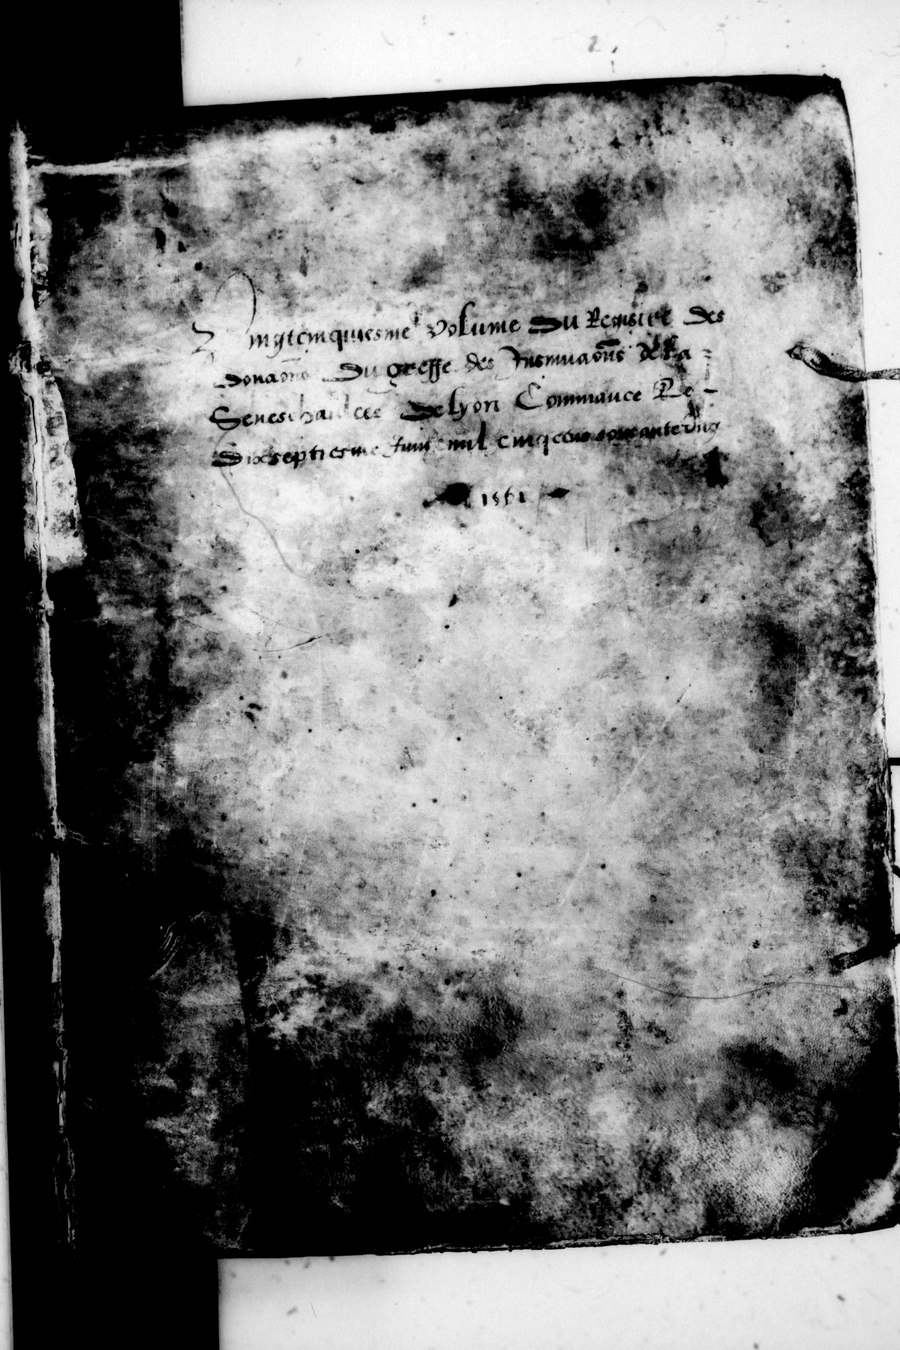 Vingtcinquiesme volume Du Registre des
Donaons Du greffe des Insinuaons de la
Seneschaulcee De lyon Commance Le
Dixseptiesme Juing mil cinqcens soixante ung
1561